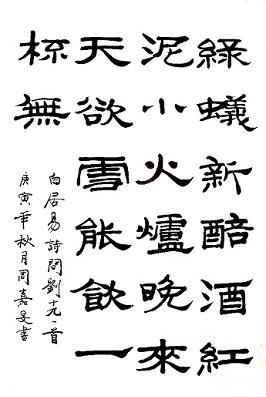 綠蟻新醅酒紅
泥小火爐晚來
天欲雪能飲一
杯無
白居易詩問劉十九一首
庚寅年秋月周嘉書